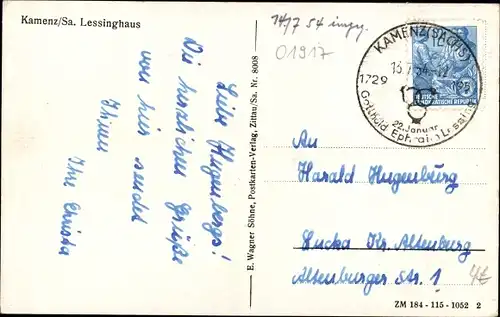 Kamenz/Sa. Lessinghaus
14/7 54
01917
KAMENZ (SACHS)
1729
22. Januar
Gotthold Ephraim Lessing
DEUTSCHE
DEMOKRATISCHE REPUBLIK
Liebe Hugenbergs!
Die herzlichen Grüße
von hier sendet
Ihnen
Ihre Christa
E. Wagner Söhne, Postkarten-Verlag, Zittau/Sa. Nr. 8008
An
Harald Hugenburg
Lucka Kr. Altenburg
Altenburger Str. 1
4€
ZM 184 - 115 - 1052 2